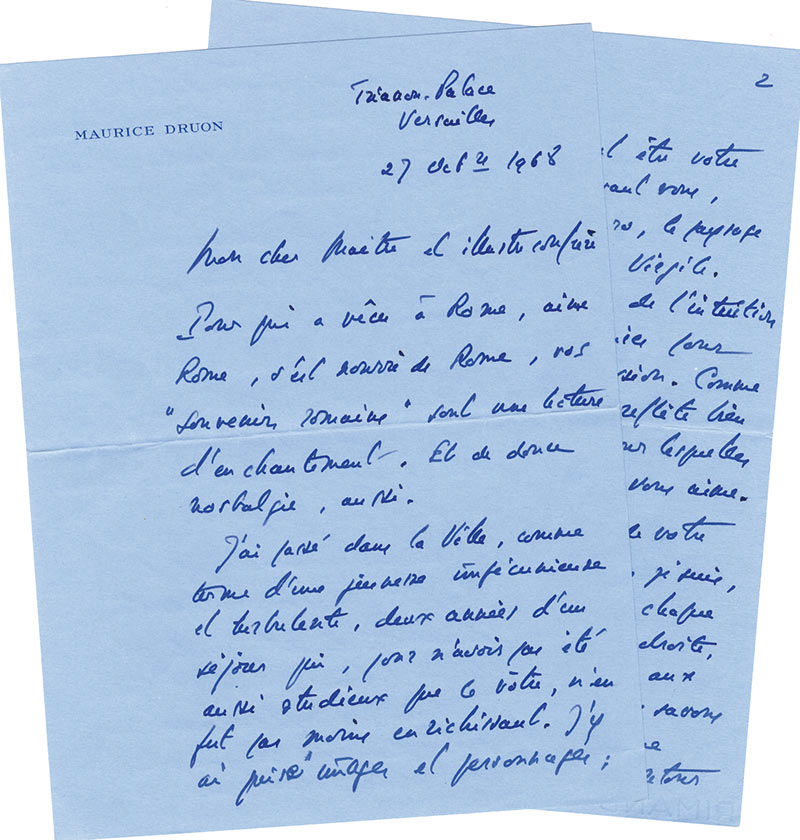 MAURICE DRUON
Trianon-Palace
Versailles
27 octbre 1968
Mon cher Maître et illustre confrère
Pour qui a vécu à Rome, aime
Rome, s'est nourri de Rome, vos
"souvenirs romains" sont une lecture
d'enchantement. Et de douce
nostalgie, aussi.
J'ai passé dans la Ville, comme
terme d'une jeunesse impécunieuse
et turbulente, deux années d'un
séjour qui, pour n'avoir pas été
aussi studieux que le vôtre, n'en
fut pas moins enrichissant. J'y
ai puisé images et personnages ;
2
être votre
vous,
, le paysage
Virgile.
de l'intention
pour
. Comme
reflète bien
lesquelles
vous aime.
votre
, je suis,
chaque
droite,
aux
savons